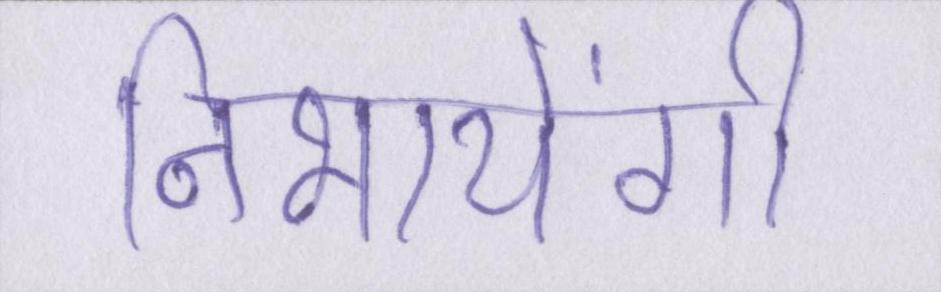 निभायेंगी